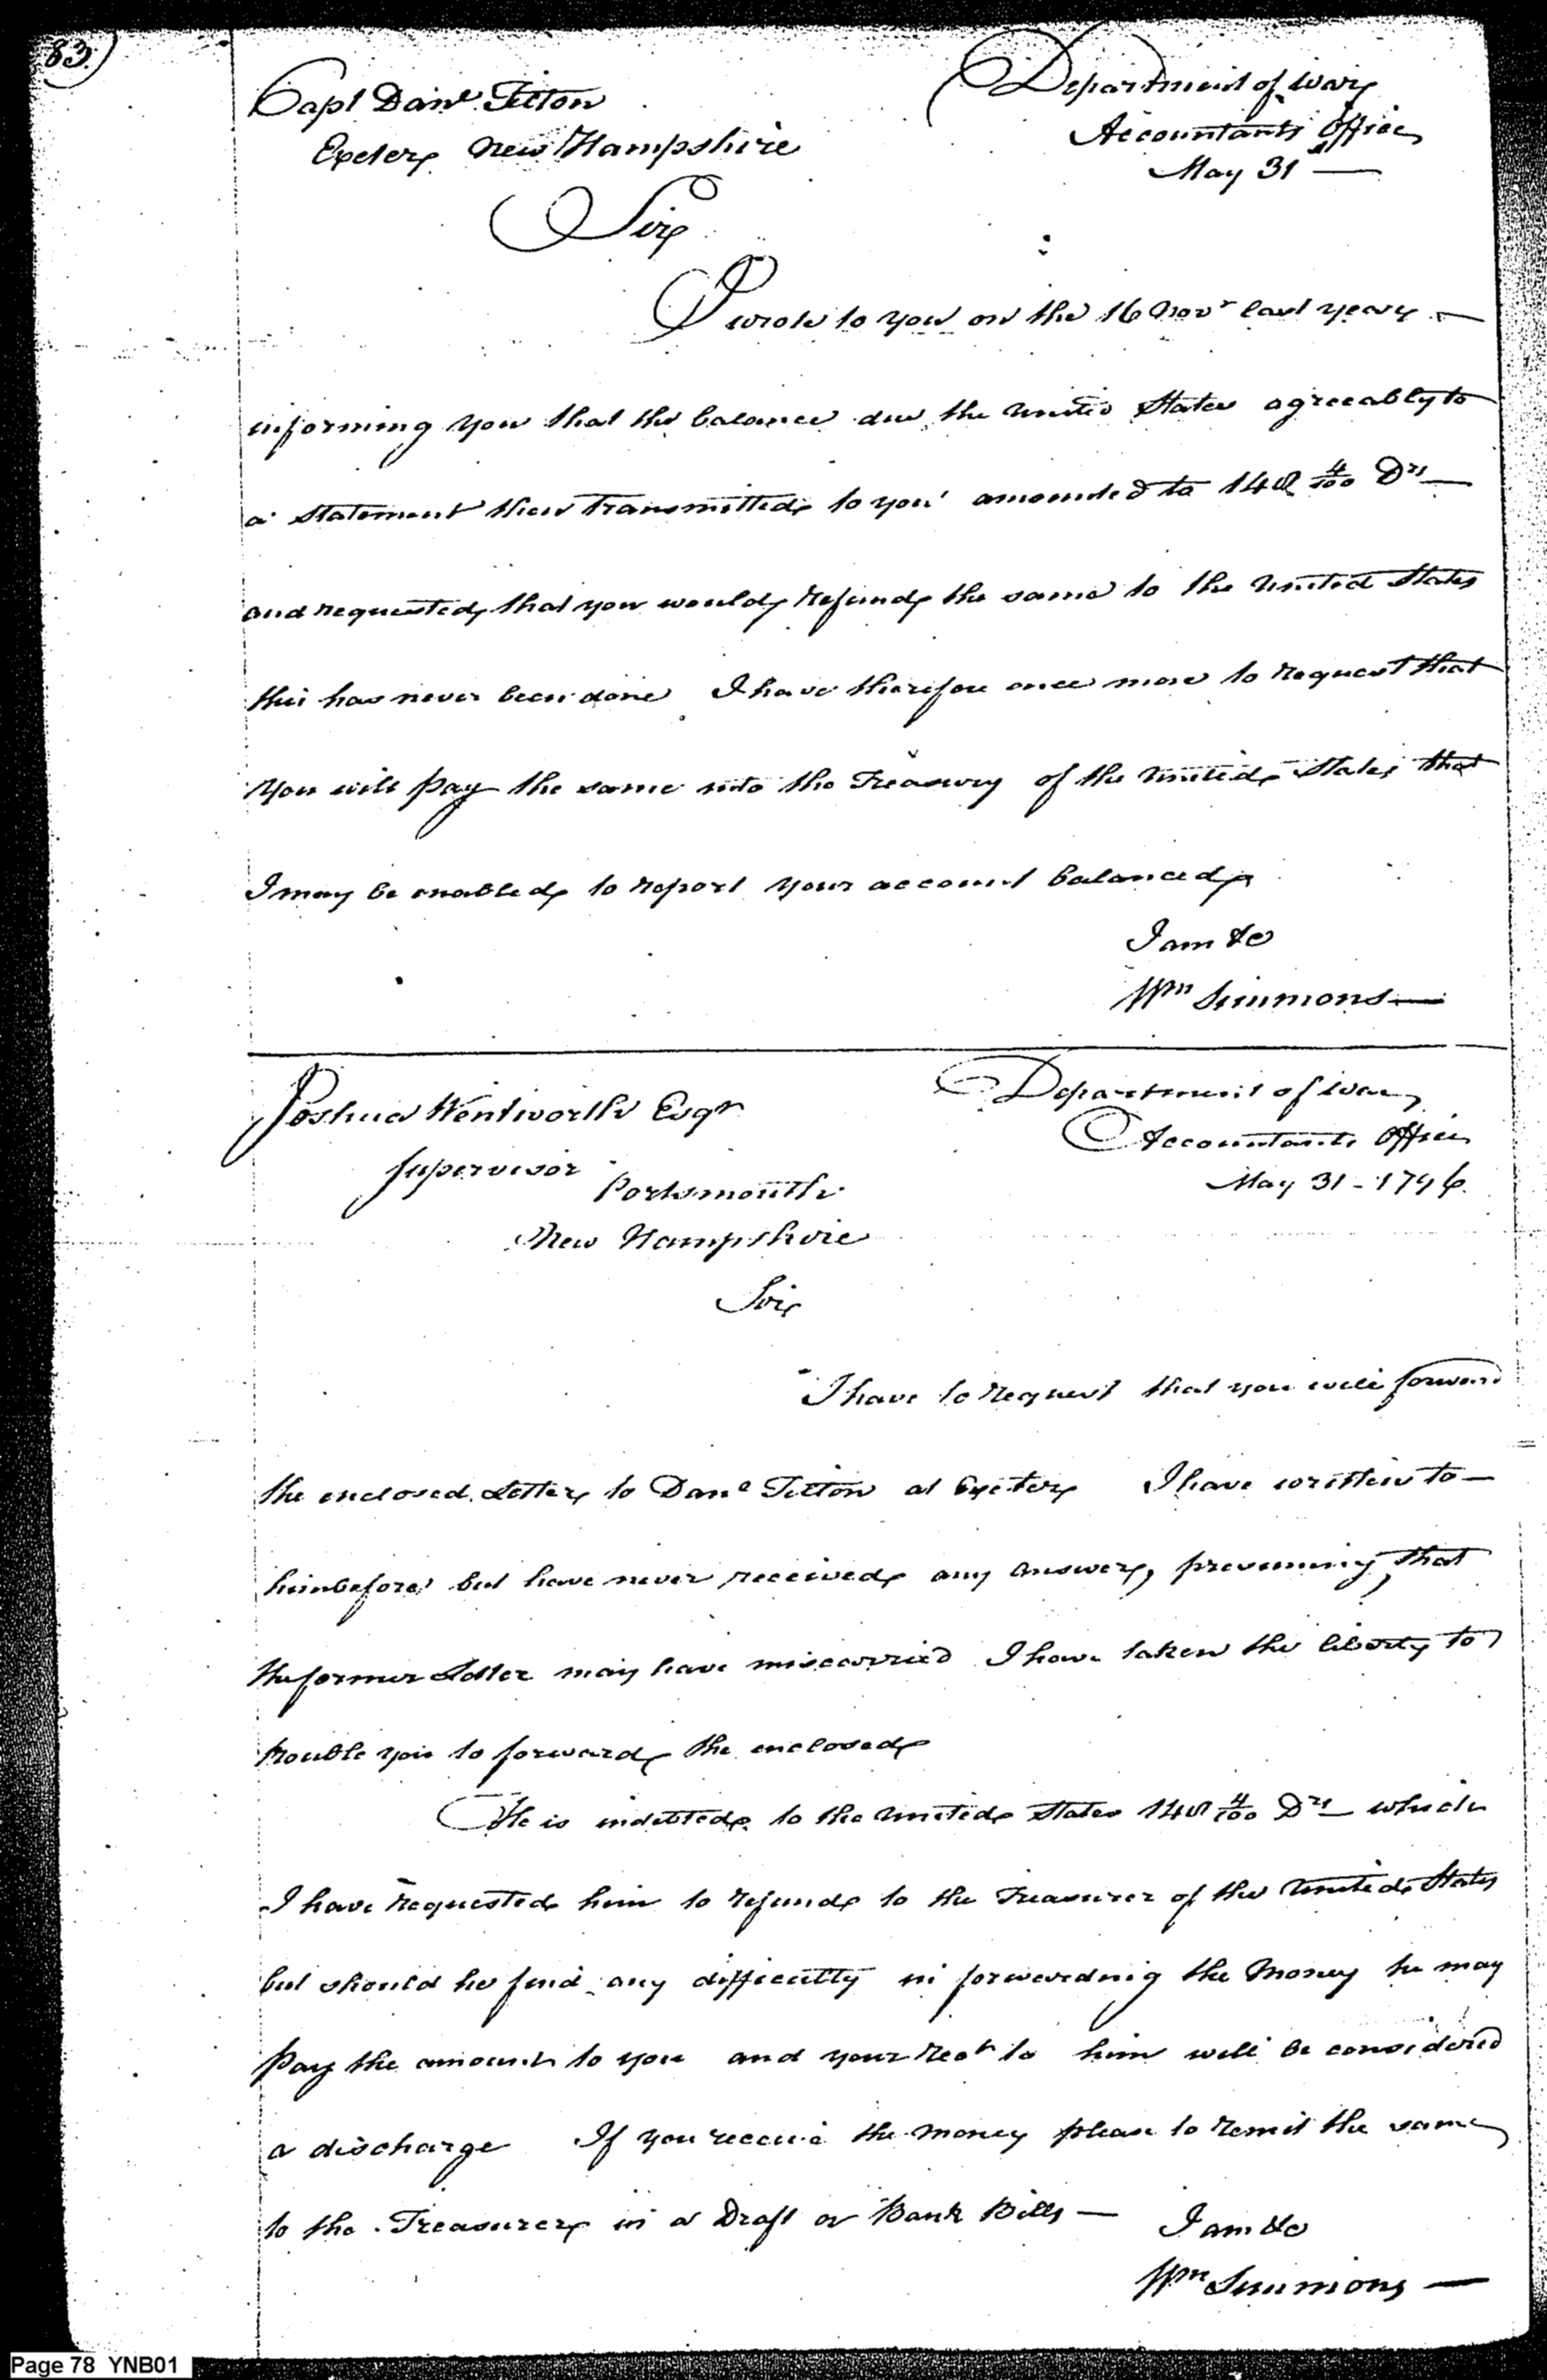 83
Capt Danl Tilton
Department of War
Accountants Office
Exeter New Hampshire
May 31 —
Sir
I wrote to you on the 16 Novr last year —
informing you that the balance due the United States agreeably to
a statement then transmitted to you amounted to 148 4/100 Drs —
and requested that you would refund the same to the United States
this has never been done I have therefore once more to request that
you will pay the same into the Treasury of the United States that
I may be enabled to report your account balanced
I am &c
Wm Simmons —
Joshua Wentworth Esqr
Department of War
Supervisor
Accountants Office
Portsmouth
May 31 - 1796.
New Hampshire
Sir
I have to request that you will forward
the enclosed Letter to Danl Tilton at Exeter I have written to —
him before but have never received any answer, presuming, that
the former Letter may have miscarried I have taken the liberty to
trouble you to forward the enclosed
He is indebted to the United States 148 4/100 Drs — which
I have requested him to refund to the Treasurer of the United States
but should he find any difficulty in forwarding the Money he may
Pay the amount to you and your rect to him will be considered
a discharge If you receive the money please to remit the same
to the Treasurer in a Draft or Bank Bills — I am &c
Wm Simmons —
Page 78 YNB01